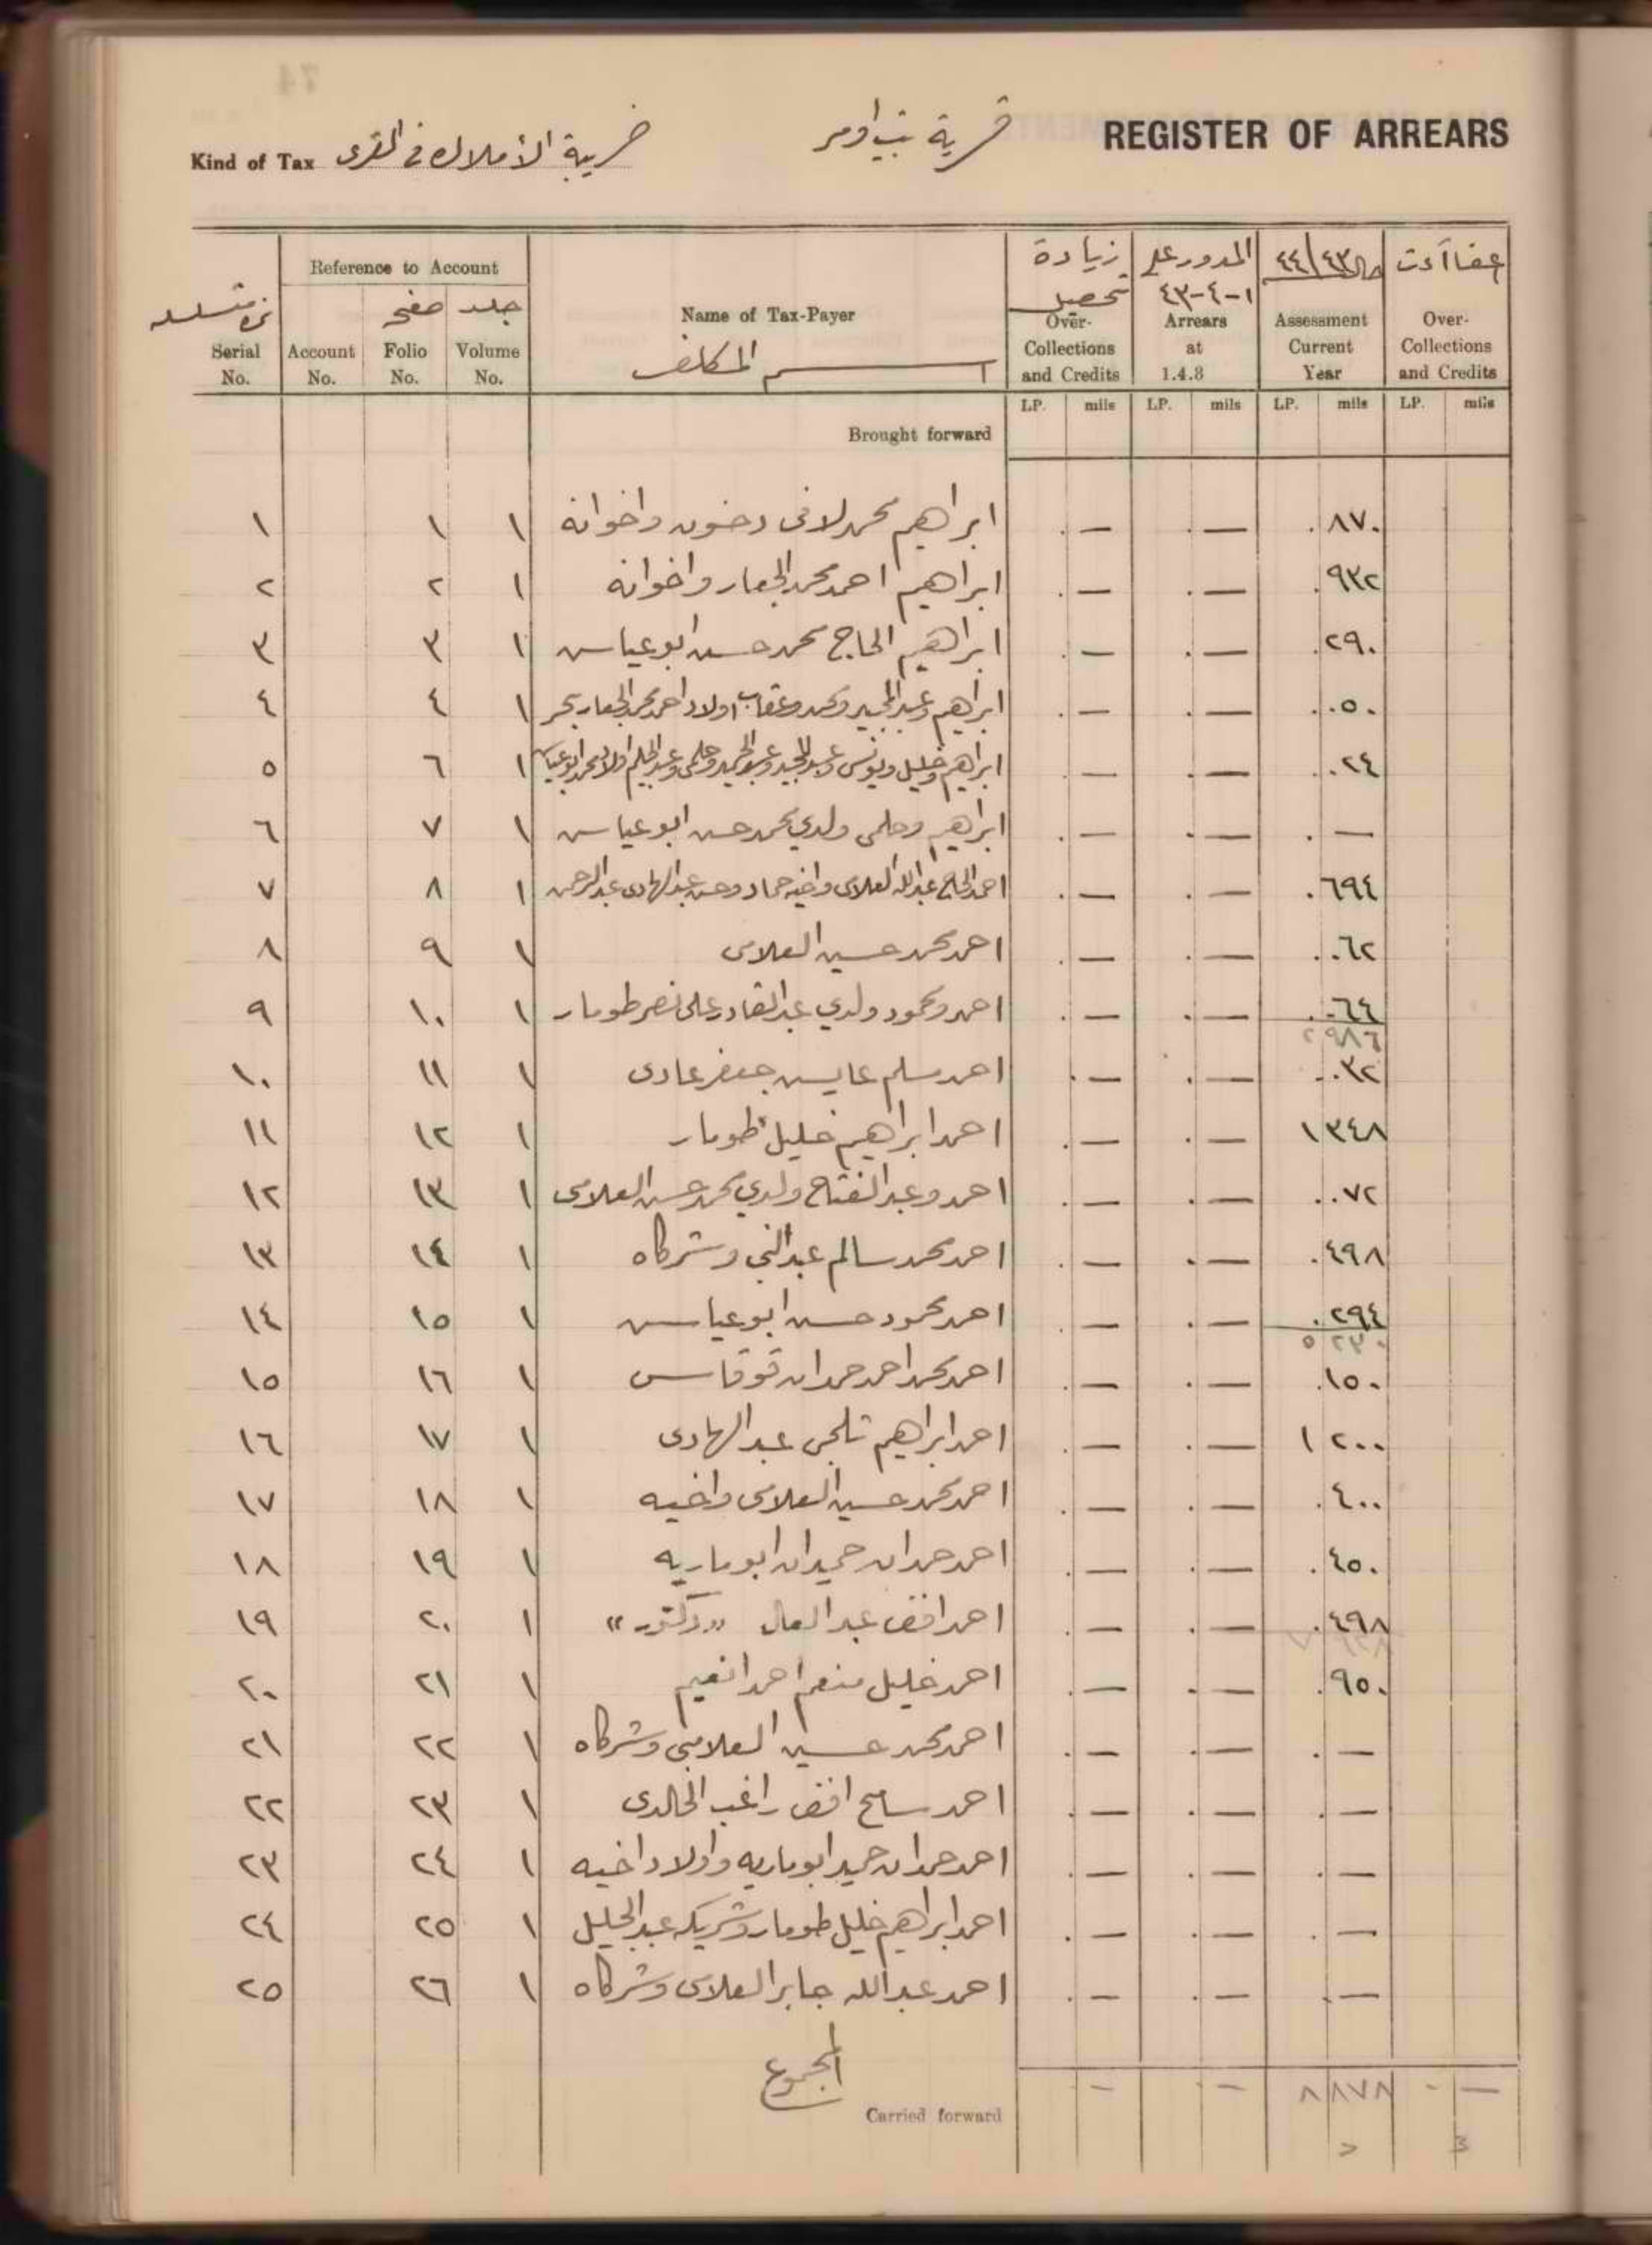 REGISTER OF ARREARS
قرية بيت اومر
Kind of Tax ضريبة الأملاك في القرى
نمرة متسلسلة Serial No.
Reference to Account
Account No.
صفحه Folio No.
جلد Volume No.
Name of Tax-Payer
اسم المكلف
زيادة تحصيل Over-Collections and Credits
المدور على ١-٤-٤٣ Arrears at 1.4.3
٤٤/٤٣ Assessment Current Year
اعفاآت Over-Collections and Credits
LP. mils LP. mils LP. mils LP. mils
Brought forward
١ ١ ١ ابراهيم محمد لافى واخوانه . — . — . ٨٧٠
٢ ٢ ١ ابراهيم احمد محمد الجعار واخوانه . — . — . ٩٣٢
٣ ٣ ١ ابراهيم الحاج محمد حسن ابو عياس . — . — . ٢٩٠
٤ ٤ ١ ابراهيم وعبد المجيد ومحمد وعقاب اولاد احمد محمد الجعار بحر . — . — . ٠٥٠
٥ ٦ ١ ابراهيم وخليل ويونس وعبد المجيد وعبد الحميد وحلمى وعبد الحليم اولاد محمد ابو عياس . — . — . ٠٢٤
٦ ٧ ١ ابراهيم وحلمى ولدي محمد حسن ابو عياس . — . — . —
٧ ٨ ١ احمد الحاج عبد الله العلامى واخيه حماد وحسن عبد الهادى عبد الرحمن . — . — . ٦٩٤
٨ ٩ ١ احمد محمد حسين العلامى . — . — . ٠٦٢
٩ ١٠ ١ احمد ومحمود ولدي عبد القادر على نصر طومار . — . — . ٠٦٤
٢ ٩٨٦
١٠ ١١ ١ احمد سلم عايس جعفر عادى . — . — . ٠٣٢
١١ ١٢ ١ احمد ابراهيم خليل طومار . — . — ١ ٣٤٨
١٢ ١٣ ١ احمد وعبد الفتاح ولدي محمد حسن العلامى . — . — . ٠٧٢
١٣ ١٤ ١ احمد محمد سالم عبد النبي وشركاه . — . — . ٤٩٨
١٤ ١٥ ١ احمد محمود حسن ابو عياس . — . — . ٢٩٤
٥ ٢٣٠
١٥ ١٦ ١ احمد محمد احمد حمدان قوقاس . — . — . ١٥٠
١٦ ١٧ ١ احمد ابراهيم ثلجى عبد الهادى . — . — ١ ٢٠٠
١٧ ١٨ ١ احمد محمد حسين العلامى واخيه . — . — . ٤٠٠
١٨ ١٩ ١ احمد حمدان حميدان ابو ماريه . — . — . ٤٥٠
١٩ ٢٠ ١ احمد افندى عبد العال "دكتور" . — . — . ٤٩٨
٢٠ ٢١ ١ احمد خليل منعم احمد انعيم . — . — . ٩٥٠
٢١ ٢٢ ١ احمد محمد حسين العلامى وشركاه . — . — . —
٢٢ ٢٣ ١ احمد سامح افندى راغب الخالدى . — . — . —
٢٣ ٢٤ ١ احمد حمدان حميد ابو ماريه واولاد اخيه . — . — . —
٢٤ ٢٥ ١ احمد ابراهيم خليل طومار وشريكه عبد الجليل . — . — . —
٢٥ ٢٦ ١ احمد عبد الله جابر العلامى وشركاه . — . — . —
المجموع
Carried forward — . — ٨ ٨٧٨ . —